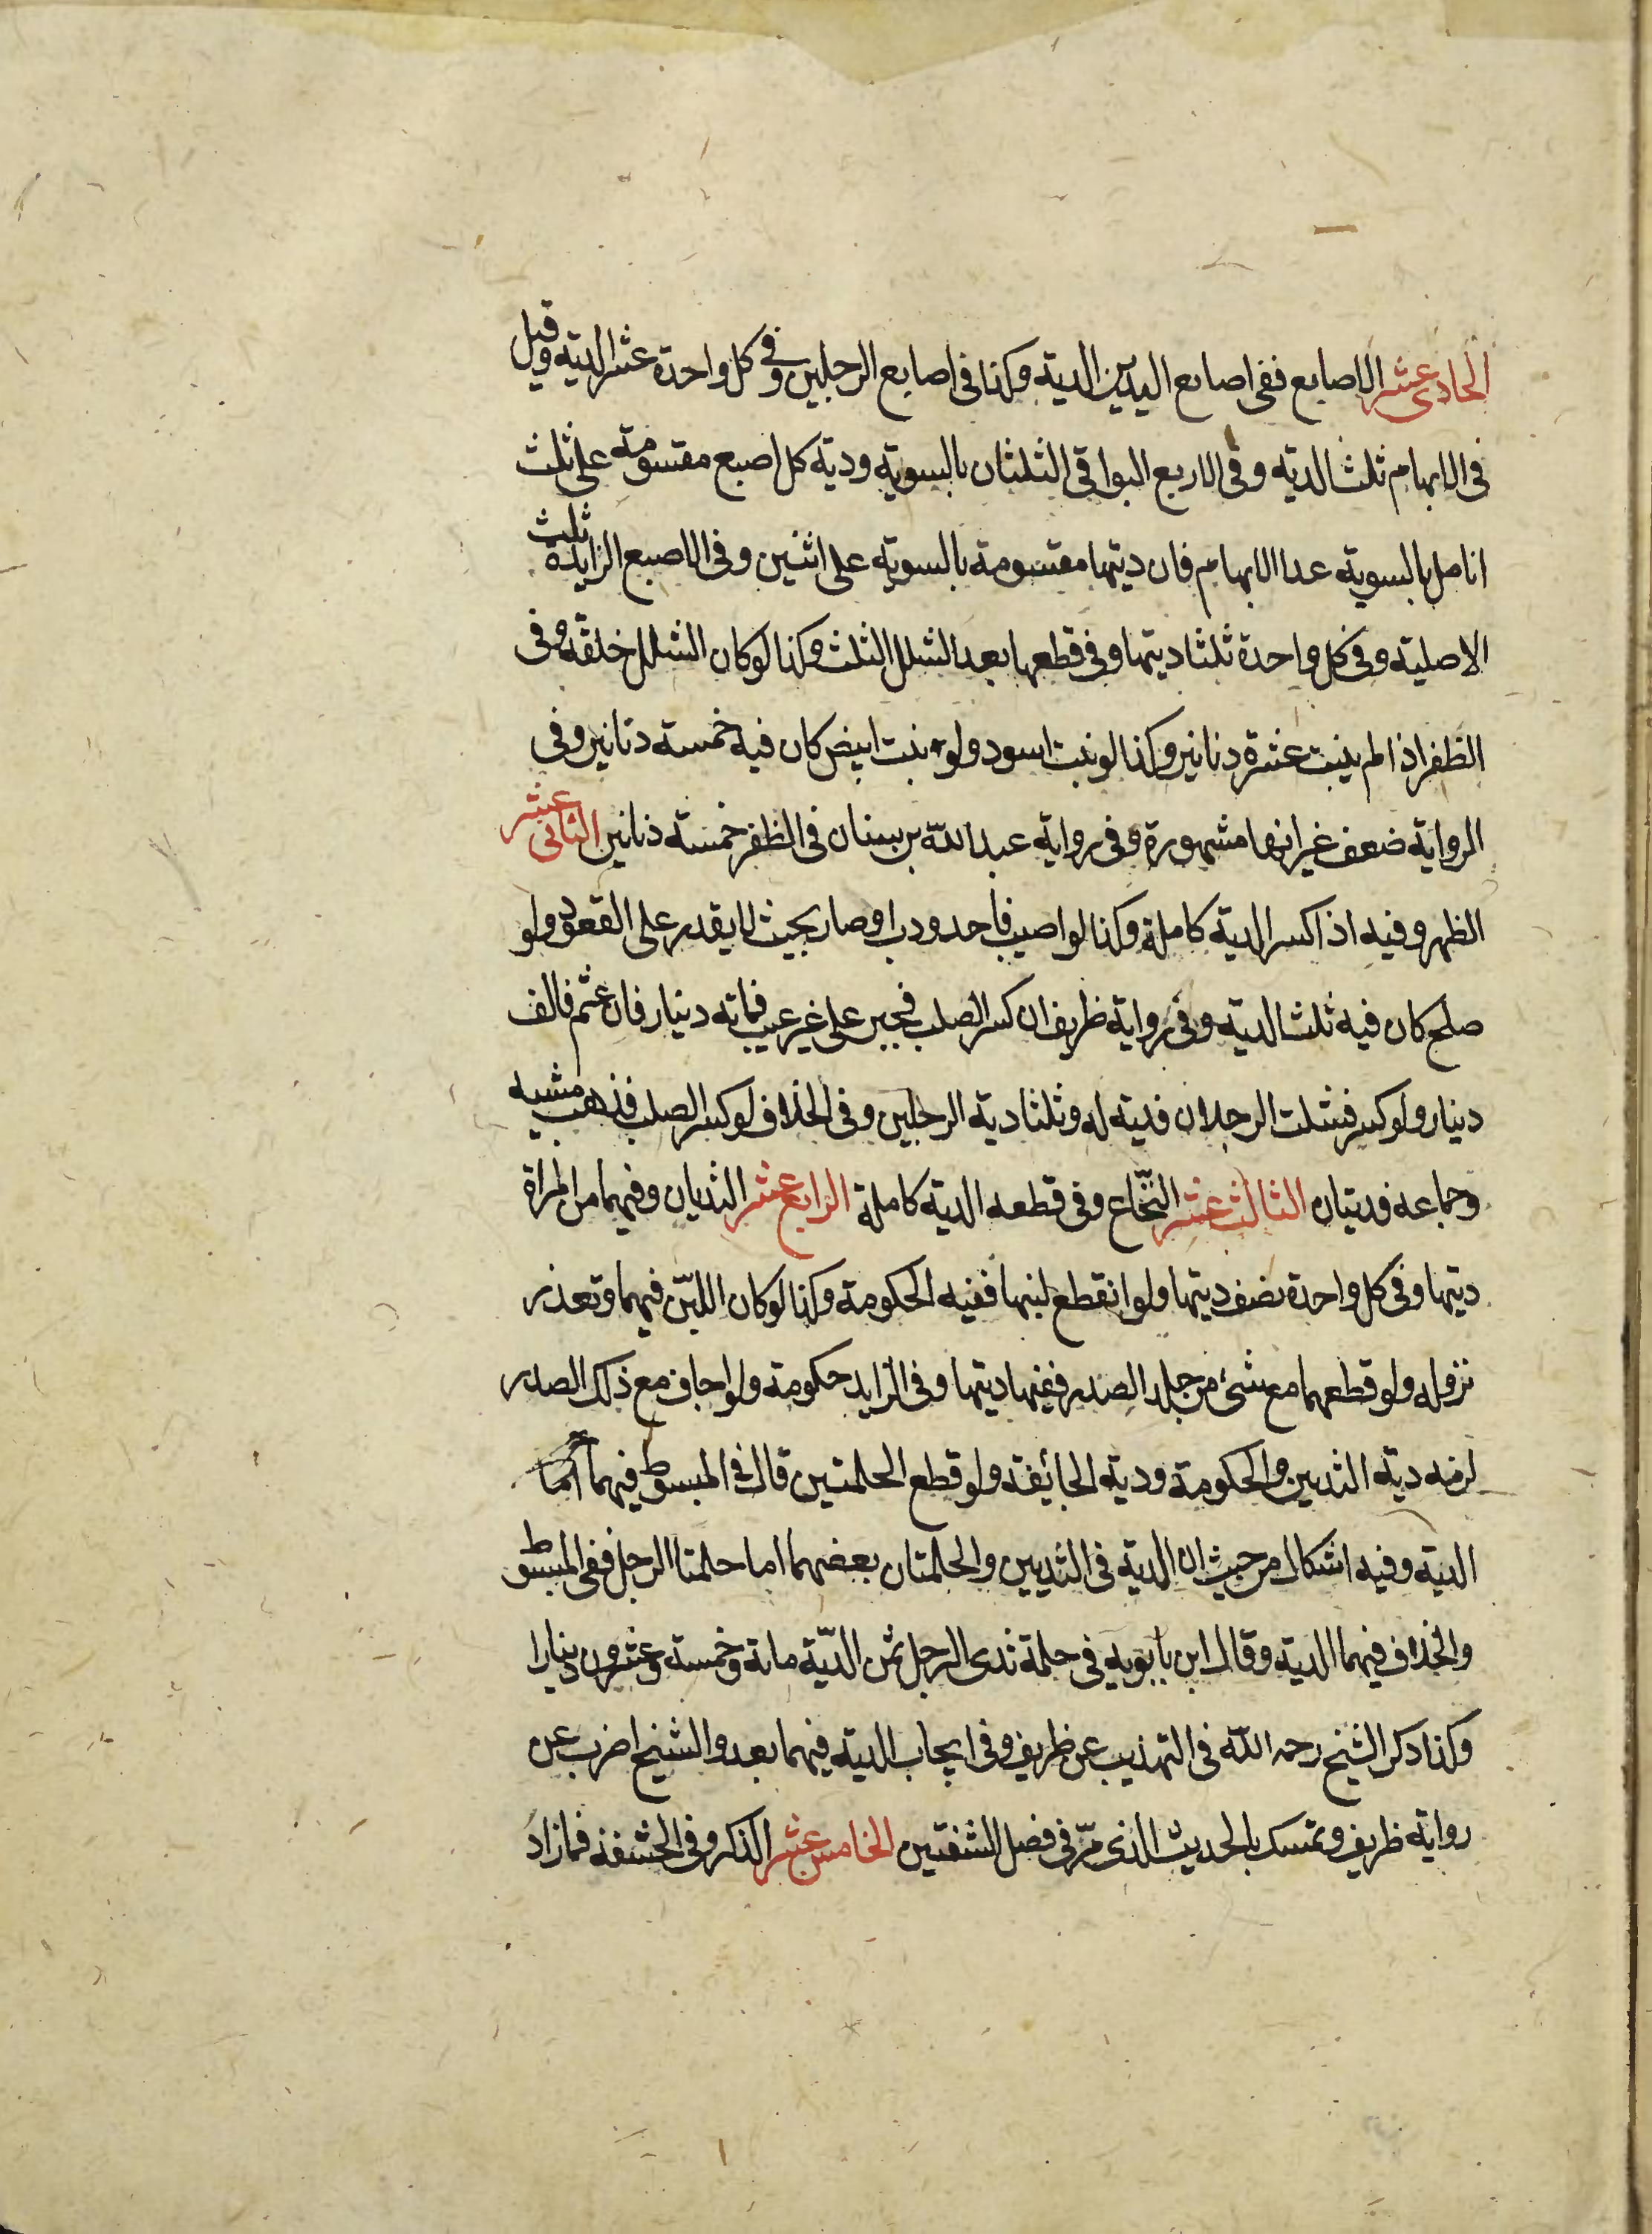 الحادى عشر الاصابع ففى اصابع اليدين الدية وكذا فى اصابع الرجلين وفى كل واحدة عشر الدية وقيل
فى الابهام ثلث الدية وفى الاربع البواقى الثلثان بالسوية ودية كل اصبع مقسومة على ثلث
انامل بالسوية عدا الابهام فان ديتها مقسومة بالسوية على اثنين وفى الاصبع الزايدة ثلث
الاصلية وفى كل واحدة ثلثا ديتها وفى قطعها بعد الشلل الثلث وكذا لو كان الشلل خلقة وفى
الظفر اذا لم ينبت عشرة دنانير وكذا لو نبت اسود ولو نبت ابيض كان فيه خمسة دنانير وفى
الرواية ضعف غير انها مشهورة وفى رواية عبد الله بن سنان فى الظفر خمسة دنانير الثانى عشر
الظهر وفيه اذا كسر الدية كاملة وكذا لو اصيب فاحدودب او صار بحيث لا يقدر على القعود ولو
صلح كان فيه ثلث الدية وفى رواية ظريف ان كسر الصلب فجبر على غير عيب فماته دينار فان عثم فالف
دينار ولو كسر فشلت الرجلان فدية له وثلثا دية الرجلين وفى الخلاف لو كسر الصلب فذهب مشيه
وجماعه فديتان الثالث عشر النخاع وفى قطعه الدية كاملة الرابع عشر الثديان وفيهما من المراة
ديتها وفى كل واحدة نصف ديتها ولو انقطع لبنها ففيه الحكومة وكذا لو كان اللبن فيهما وتعذر
نزوله ولو قطعهما مع شئ من جلد الصدر ففيها ديتها وفى الزايد حكومة ولو اجاف مع ذلك الصدر
لزمه دية الثديين والحكومة ودية الجائفة ولو قطع الحلمتين قال فى المبسوط فيهما
الدية وفيه اشكال من حيث ان الدية فى الثديين والحلمتان بعضهما اما حلمتا الرجل ففى المبسوط
والخلاف فيهما الدية وقال ابن بابويه فى حلمة ثدى الرجل ثمن الدية ماتة وخمسة وعشرون دينارا
وكذا ذكر الشيخ رحمه الله فى التهذيب عن ظريف وفى ايجاب الدية فيهما بعد والشيخ اضرب عن
رواية ظريف وتمسك بالحديث الذى مر فى فصل الشفتين الخامس عشر الذكر وفى الحشفة فمازاد